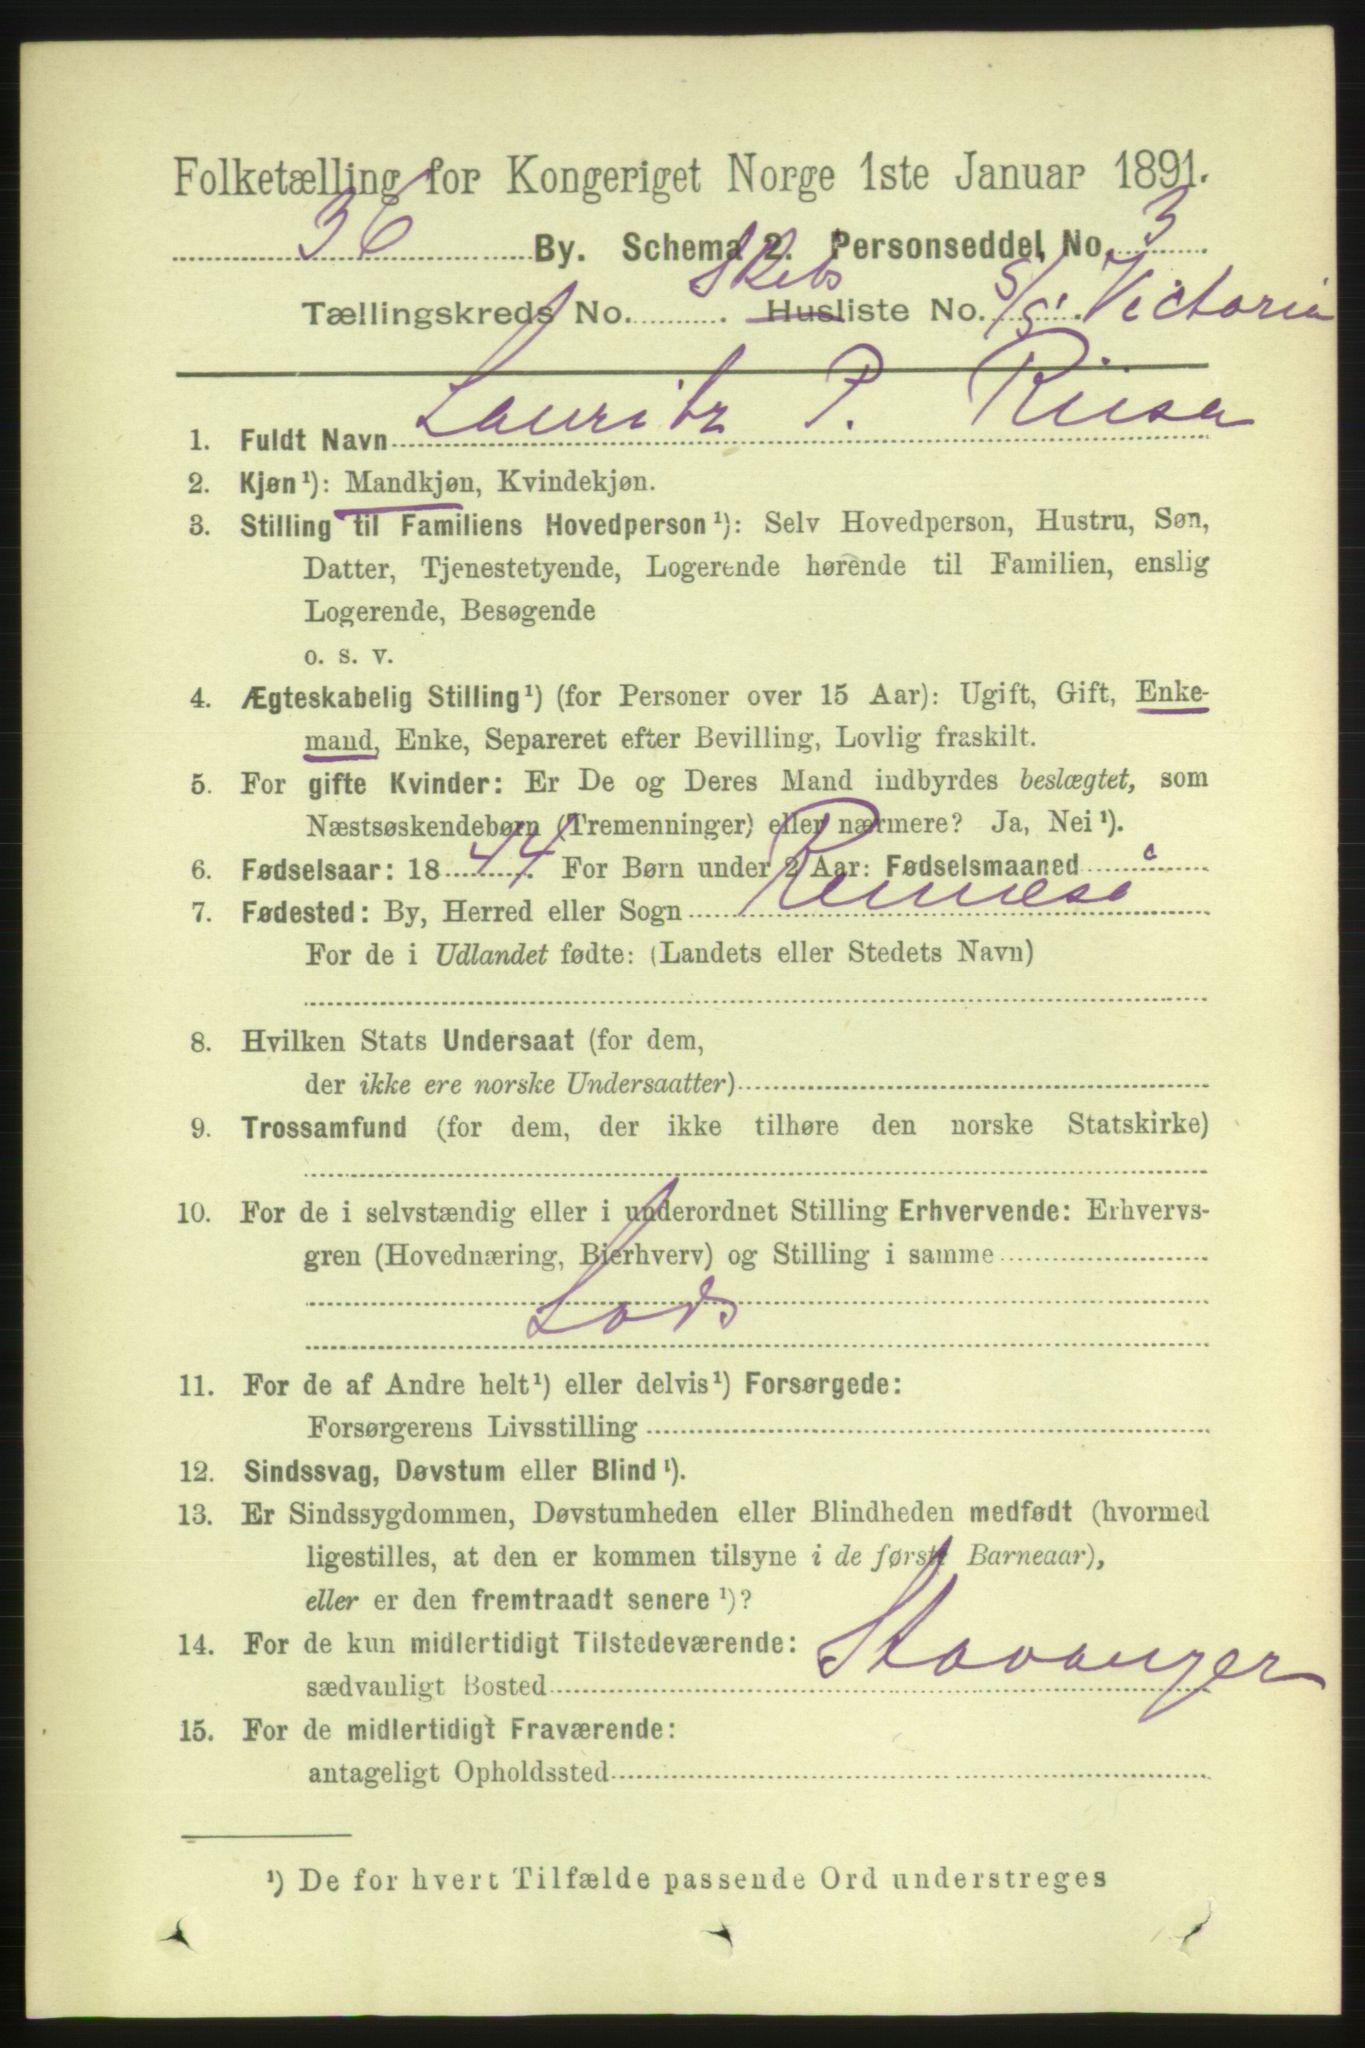 Folketælling for Kongeriget Norge 1ste Januar 1891.
36 By. Schema 2. Personseddel No. 3
Tællingskreds No. Skibs Husliste No. S/S. Victoria
1. Fuldt Navn Lauritz P. Riisa
2. Kjøn¹): Mandkjøn, Kvindekjøn.
3. Stilling til Familiens Hovedperson¹): Selv Hovedperson, Hustru, Søn,
Datter, Tjenestetyende, Logerende hørende til Familien, enslig
Logerende, Besøgende
o. s. v.
4. Ægteskabelig Stilling¹) (for Personer over 15 Aar): Ugift, Gift, Enke-
mand, Enke, Separeret efter Bevilling, Lovlig fraskilt.
5. For gifte Kvinder: Er De og Deres Mand indbyrdes beslægtet, som
Næstsøskendebørn (Tremenninger) eller nærmere? Ja, Nei¹).
6. Fødselsaar: 1844. For Børn under 2 Aar: Fødselsmaaned
7. Fødested: By, Herred eller Sogn Rennesø
For de i Udlandet fødte: (Landets eller Stedets Navn)
8. Hvilken Stats Undersaat (for dem,
der ikke ere norske Undersaatter)
9. Trossamfund (for dem, der ikke tilhøre den norske Statskirke)
10. For de i selvstændig eller i underordnet Stilling Erhvervende: Erhvervs-
gren (Hovednæring, Bierhverv) og Stilling i samme
Lods
11. For de af Andre helt¹) eller delvis¹) Forsørgede:
Forsørgerens Livsstilling
12. Sindssvag, Døvstum eller Blind¹).
13. Er Sindssygdommen, Døvstumheden eller Blindheden medfødt (hvormed
ligestilles, at den er kommen tilsyne i de første Barneaar),
eller er den fremtraadt senere¹)?
14. For de kun midlertidigt Tilstedeværende:
sædvanligt Bosted Stavanger
15. For de midlertidigt Fraværende:
antageligt Opholdssted
¹) De for hvert Tilfælde passende Ord understreges